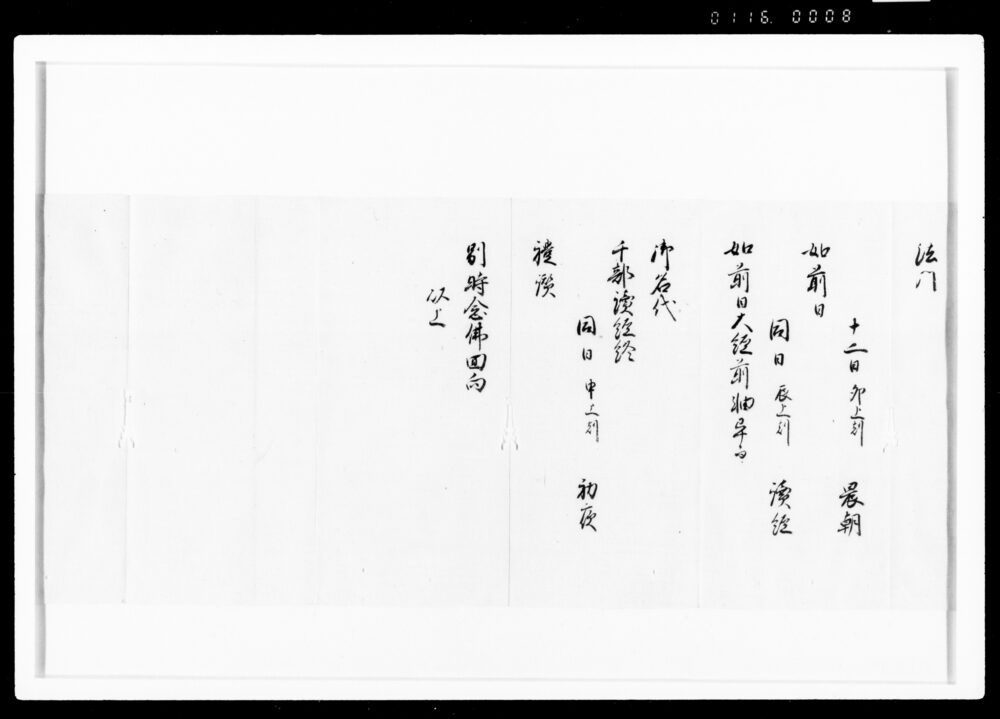 0116. 0008
法門
十二日 卯上刻 晨朝
如前日
同日 辰上刻 讀經
如前日大經前軸
御名代
千部讀經終
同日 申上刻 初夜
禮讃
別時念佛回向
以上